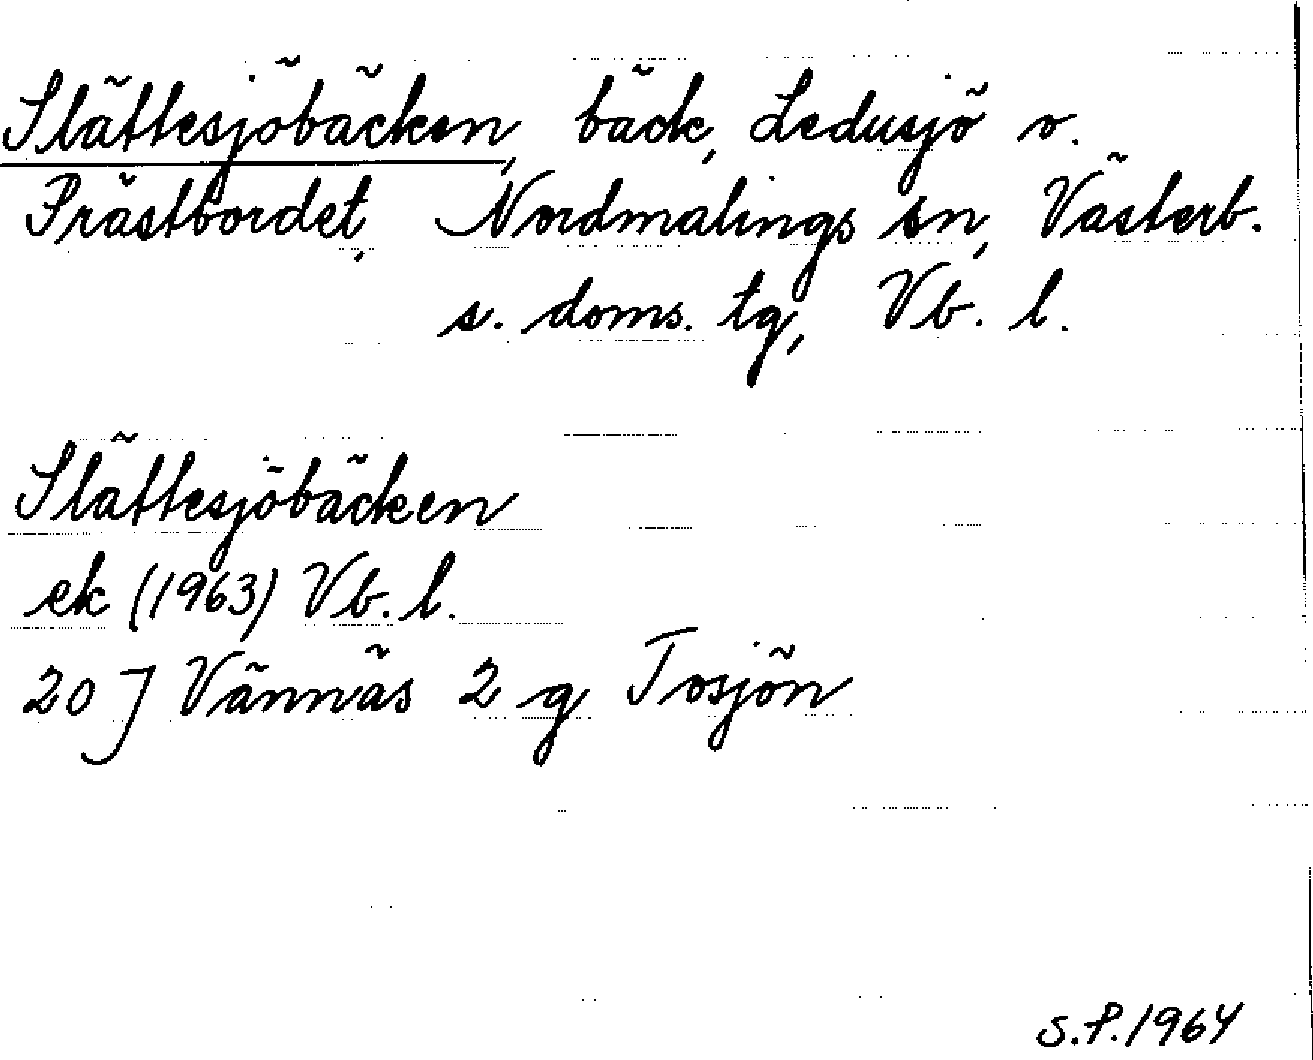 Slättesjöbäcken, bäck, Ledusjö o.
Prästbordet, Nordmalings sn, Västerb.
s. doms. tg, Vb. l.
Slättesjöbäcken
ek (1963) Vb. l.
20 J Vännäs 2 g Tosjön
S.P. 1964